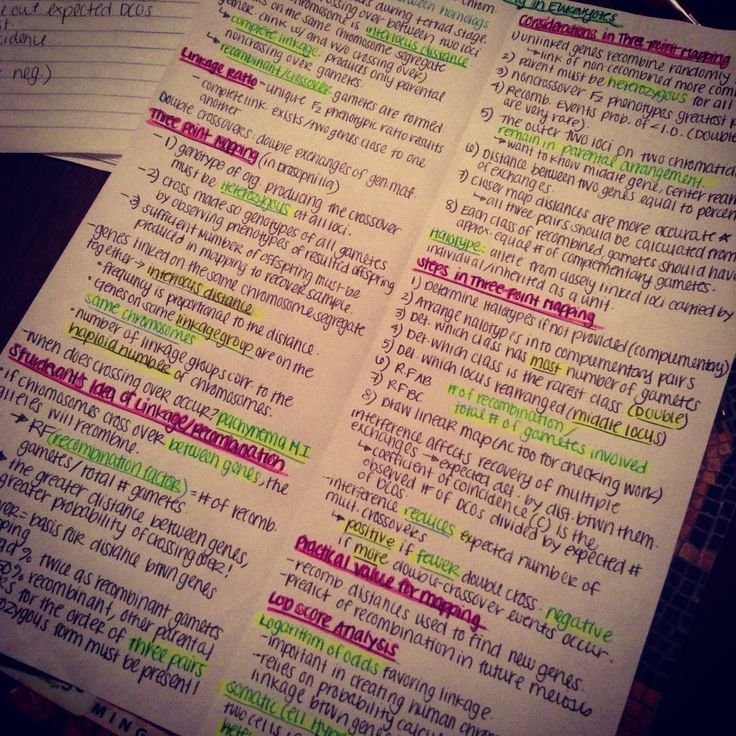 out expected DCOs
neg.)
between homologs
during tetrad stage.
crossing over between two loci
on the same chromosome segregate
chromosome is interlocus distance
complete linkage: produces only parental
noncrossing over gametes.
recombinant/crossover gametes are formed.
Linkage Ratio - unique F2 phenotypic ratio results
- complete link exists/two genes close to one
another
Double crossovers: double exchanges of gen. mat.
Three point mapping (in drosophilia)
- 1) genotype of org. producing the crossover
must be heterozygous at all loci.
- 2) cross made so genotypes of all gametes
by observing phenotypes of resulted offspring
- 3) sufficient numbers of offspring must be
produced in mapping to recover sample.
- genes linked on the same chromosome segregate
together → interlocus distance
• frequency is proportional to the distance.
• genes on same linkage group are on the
same chromosomes
• number of linkage groups corr to the
haploid number of chromosomes.
- when does crossing over occur? pachynema M.I
Sturdivants Idea of Linkage/recombination
• if chromosomes cross over between genes, the
alleles will recombine.
→ RF (recombination factor) = # of recomb.
gametes/total # gametes
the greater distance between genes,
greater probability of crossing over!
= basis for distance btwn genes
twice as recombinant gametes
50% recombinant, other parental
for the order of three pairs
form must be present!
in Eukaryotes
Considerations in Three Point Mapping
1) unlinked genes recombine randomly
↳ link of non recombined more
2) Parent must be heterozygous for all
3) noncrossover F2 phenotypes greatest
4) Recomb. Events prob. of < 1.0. (Double
are very rare)
5) The outer two loci on two chromatids
remain in parental arrangement.
↳ want to know middle gene, center
6) Distance between two genes equal to percent
of exchanges.
7) Closer map distances are more accurate
↳ all three pairs should be calculated from
8) Each class of recombined gametes should have
approx. equal # of complementary gametes.
Halotype: allele from closely linked loci carried by
individual/inherited as a unit.
Steps in Three point Mapping
1) Determine halotypes if not provided (complementary)
2) Arrange halotypes into complementary pairs
3) Det. which class has most number of gametes
4) Det. which class is the rarest class (Double)
5) Det. which locus rearranged (middle locus)
6) RF AB
7) RF BC
# of recombination/
total # of gametes involved
8) Draw linear map (AC too for checking work)
interference affects recovery of multiple
exchanges → expected det. by dist. btwn them.
↳ coefficient of coincidence (C) is the
observed # of DCOs divided by expected #
of DCOs
- interference reduces expected number of
mult. crossovers
↳ positive if fewer double cross. negative
if more double-crossover events occur.
Practical value for mapping
- recomb distances used to find new genes.
- predict of recombination in future meiosis
LOD SCORE Analysis
Logarithm of odds favoring linkage.
- important in creating human
- relies on probability
linkage btwn genes
Somatic Cell
two cells
MING